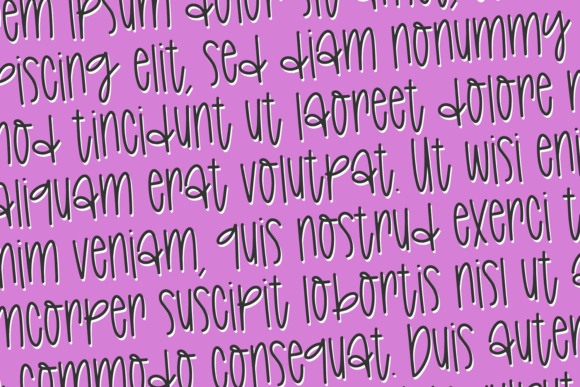 em ipsum dolor sit amet,
piscing elit, sed diam nonummy
mod tincidunt ut laoreet dolore
aliquam erat volutpat. Ut wisi eni
nim veniam, quis nostrud exerci t
mcorper suscipit lobortis nisl ut
commodo consequat. Duis autem